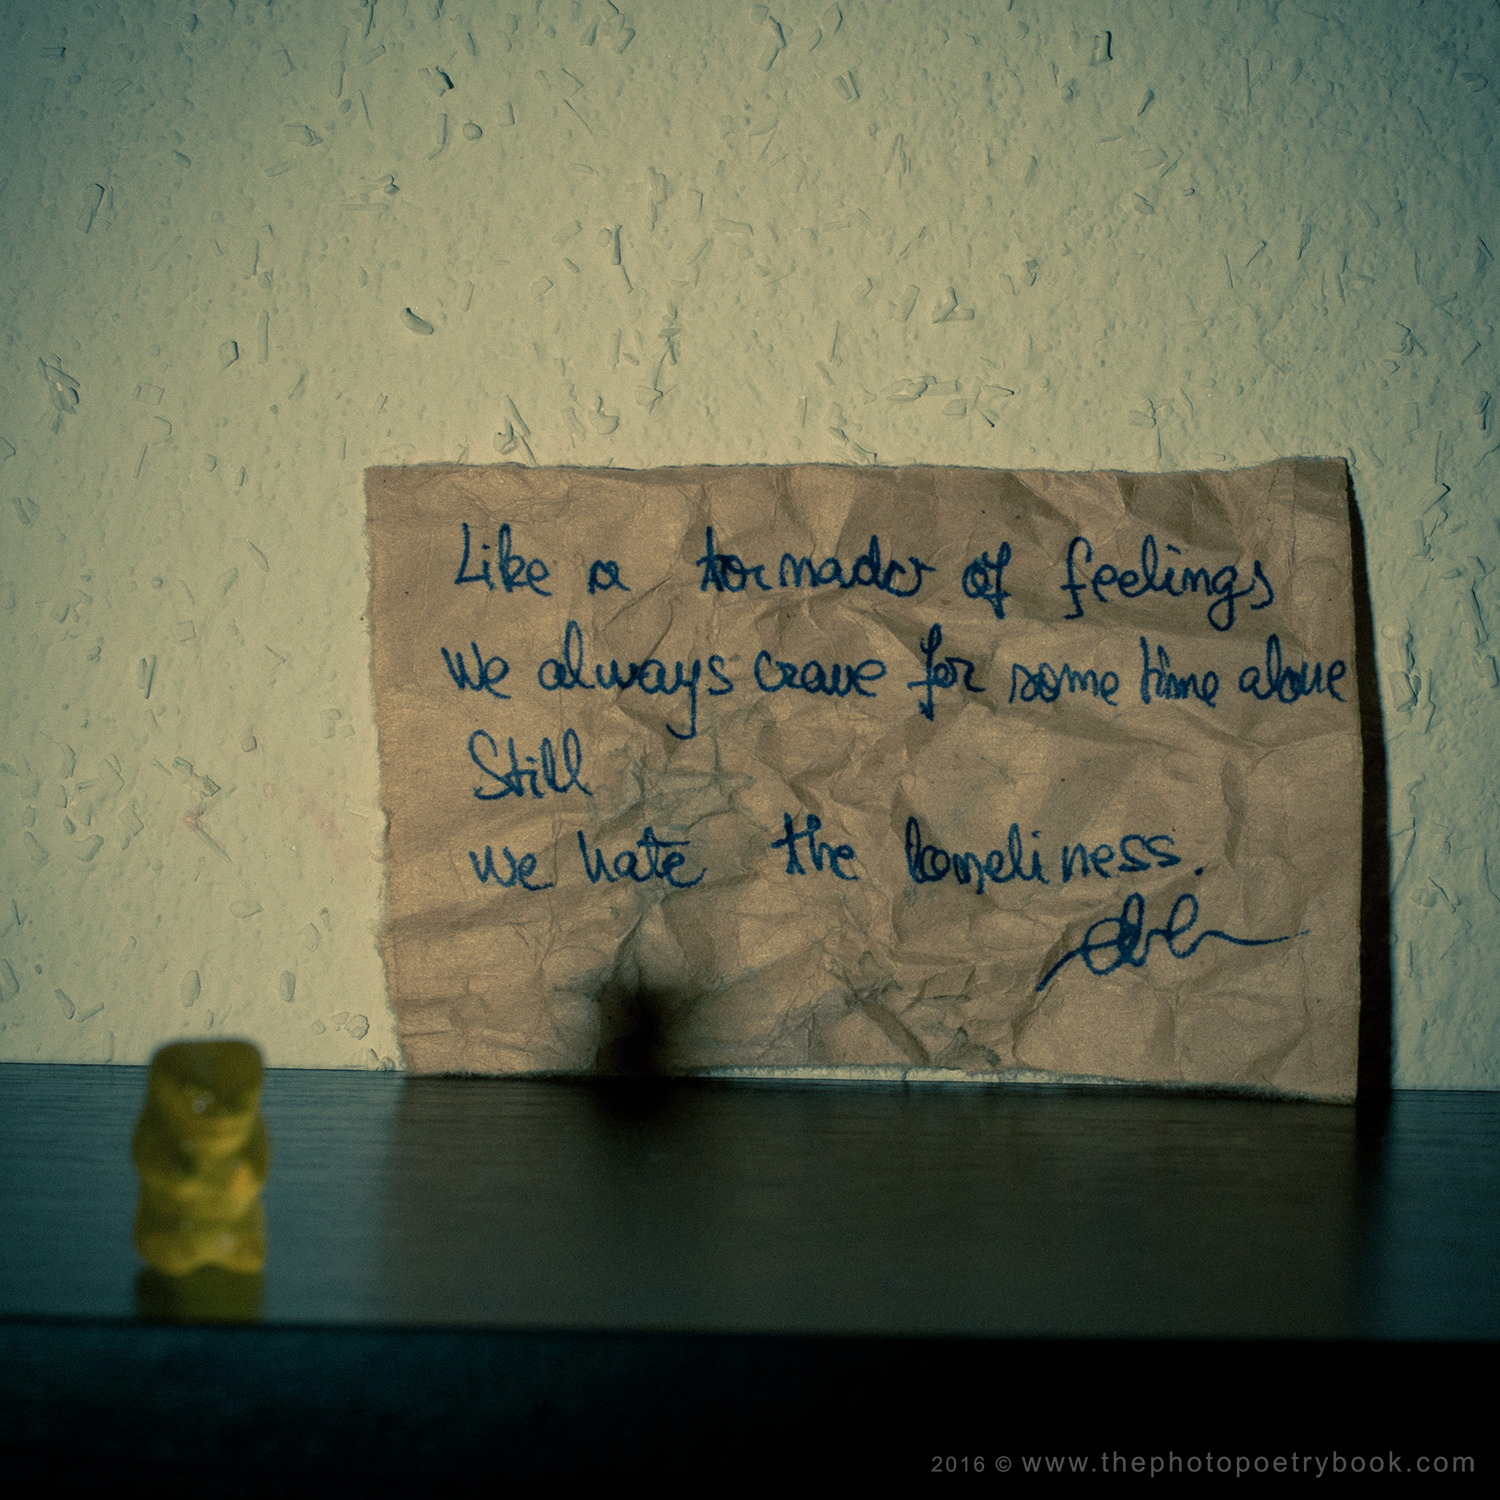 Like a tornado of feelings
we always crave for some time alone
Still
we hate the loneliness.
2016 © www.thephotopoetrybook.com